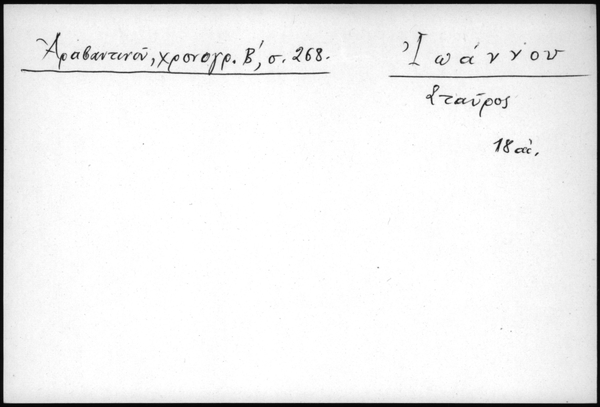 Ἀραβαντινοῦ, χρονογρ. Β΄, σ. 268.
Ἰωάννου
Σταῦρος
18 αἰ.